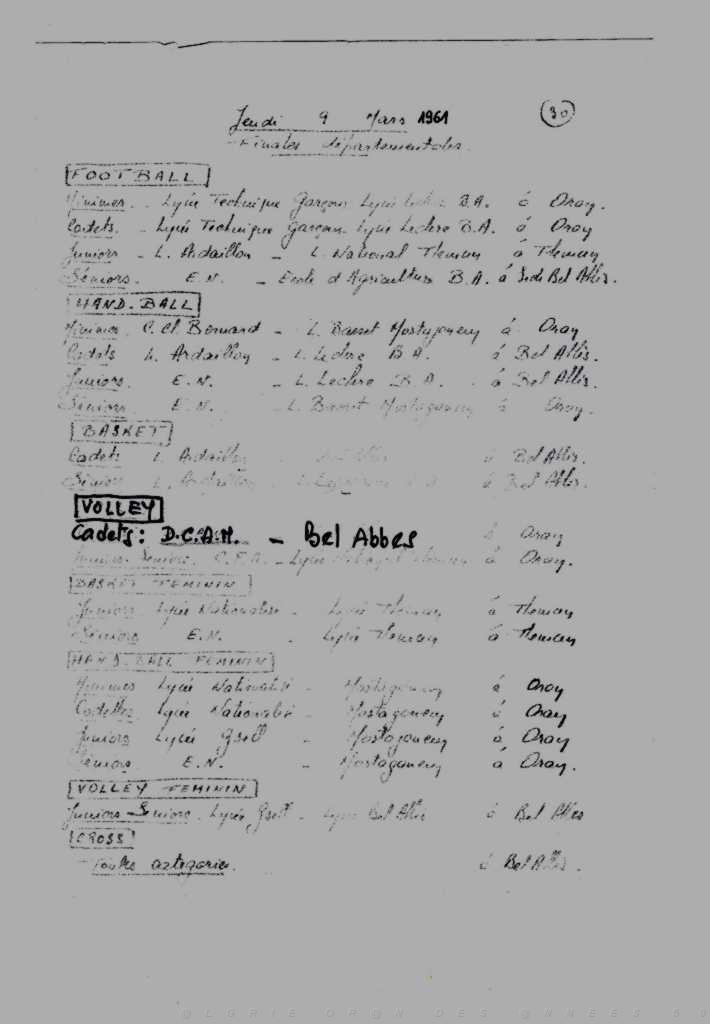 30
Jeudi 9 Mars 1961
Finales départementales.
FOOTBALL
Minimes. - Lycée Technique Garçons Lycée Leclerc B.A. à Oran.
Cadets. - Lycée Technique Garçons Lycée Leclerc B.A. à Oran
Juniors - L. Ardaillon - L. National Tlemcen à Tlemcen
Séniors. E.N. - Ecole d'Agriculture B.A. à Sidi Bel Abbès.
HAND-BALL
Minimes C. Cl. Bernard - L. Basset Mostaganem à Oran
Cadets L. Ardaillon - L. Leclerc B A. à Bel Abbès.
Juniors. E.N. - L. Leclerc B A. à Bel Abbès.
Séniors E.N. - L. Basset Mostaganem à Oran.
BASKET
Cadets L. Ardaillon à Bel Abbès.
Séniors L. Ardaillon - à Bel Abbès.
VOLLEY
Cadets: D.C.A.M. - Bel Abbes à Oran
Juniors-Séniors. - Lycée à Oran.
BASKET FEMININ
Juniors Lycée Nationalisé - Lycée Tlemcen à Tlemcen
Séniors E.N. - Lycée Tlemcen à Tlemcen
HAND-BALL FEMININ
Minimes Lycée Nationalisé - Mostaganem à Oran
Cadettes Lycée Nationalisé - Mostaganem à Oran
Juniors Lycée Gsell - Mostaganem à Oran
Séniors E.N. - Mostaganem à Oran.
VOLLEY FEMININ
Juniors-Séniors. Lycée Gsell - Lycée Bel Abbès à Bel Abbès
CROSS
- Toutes catégories. à Bel Abbès.
@LGRIE OR@N DES @NNEES 50